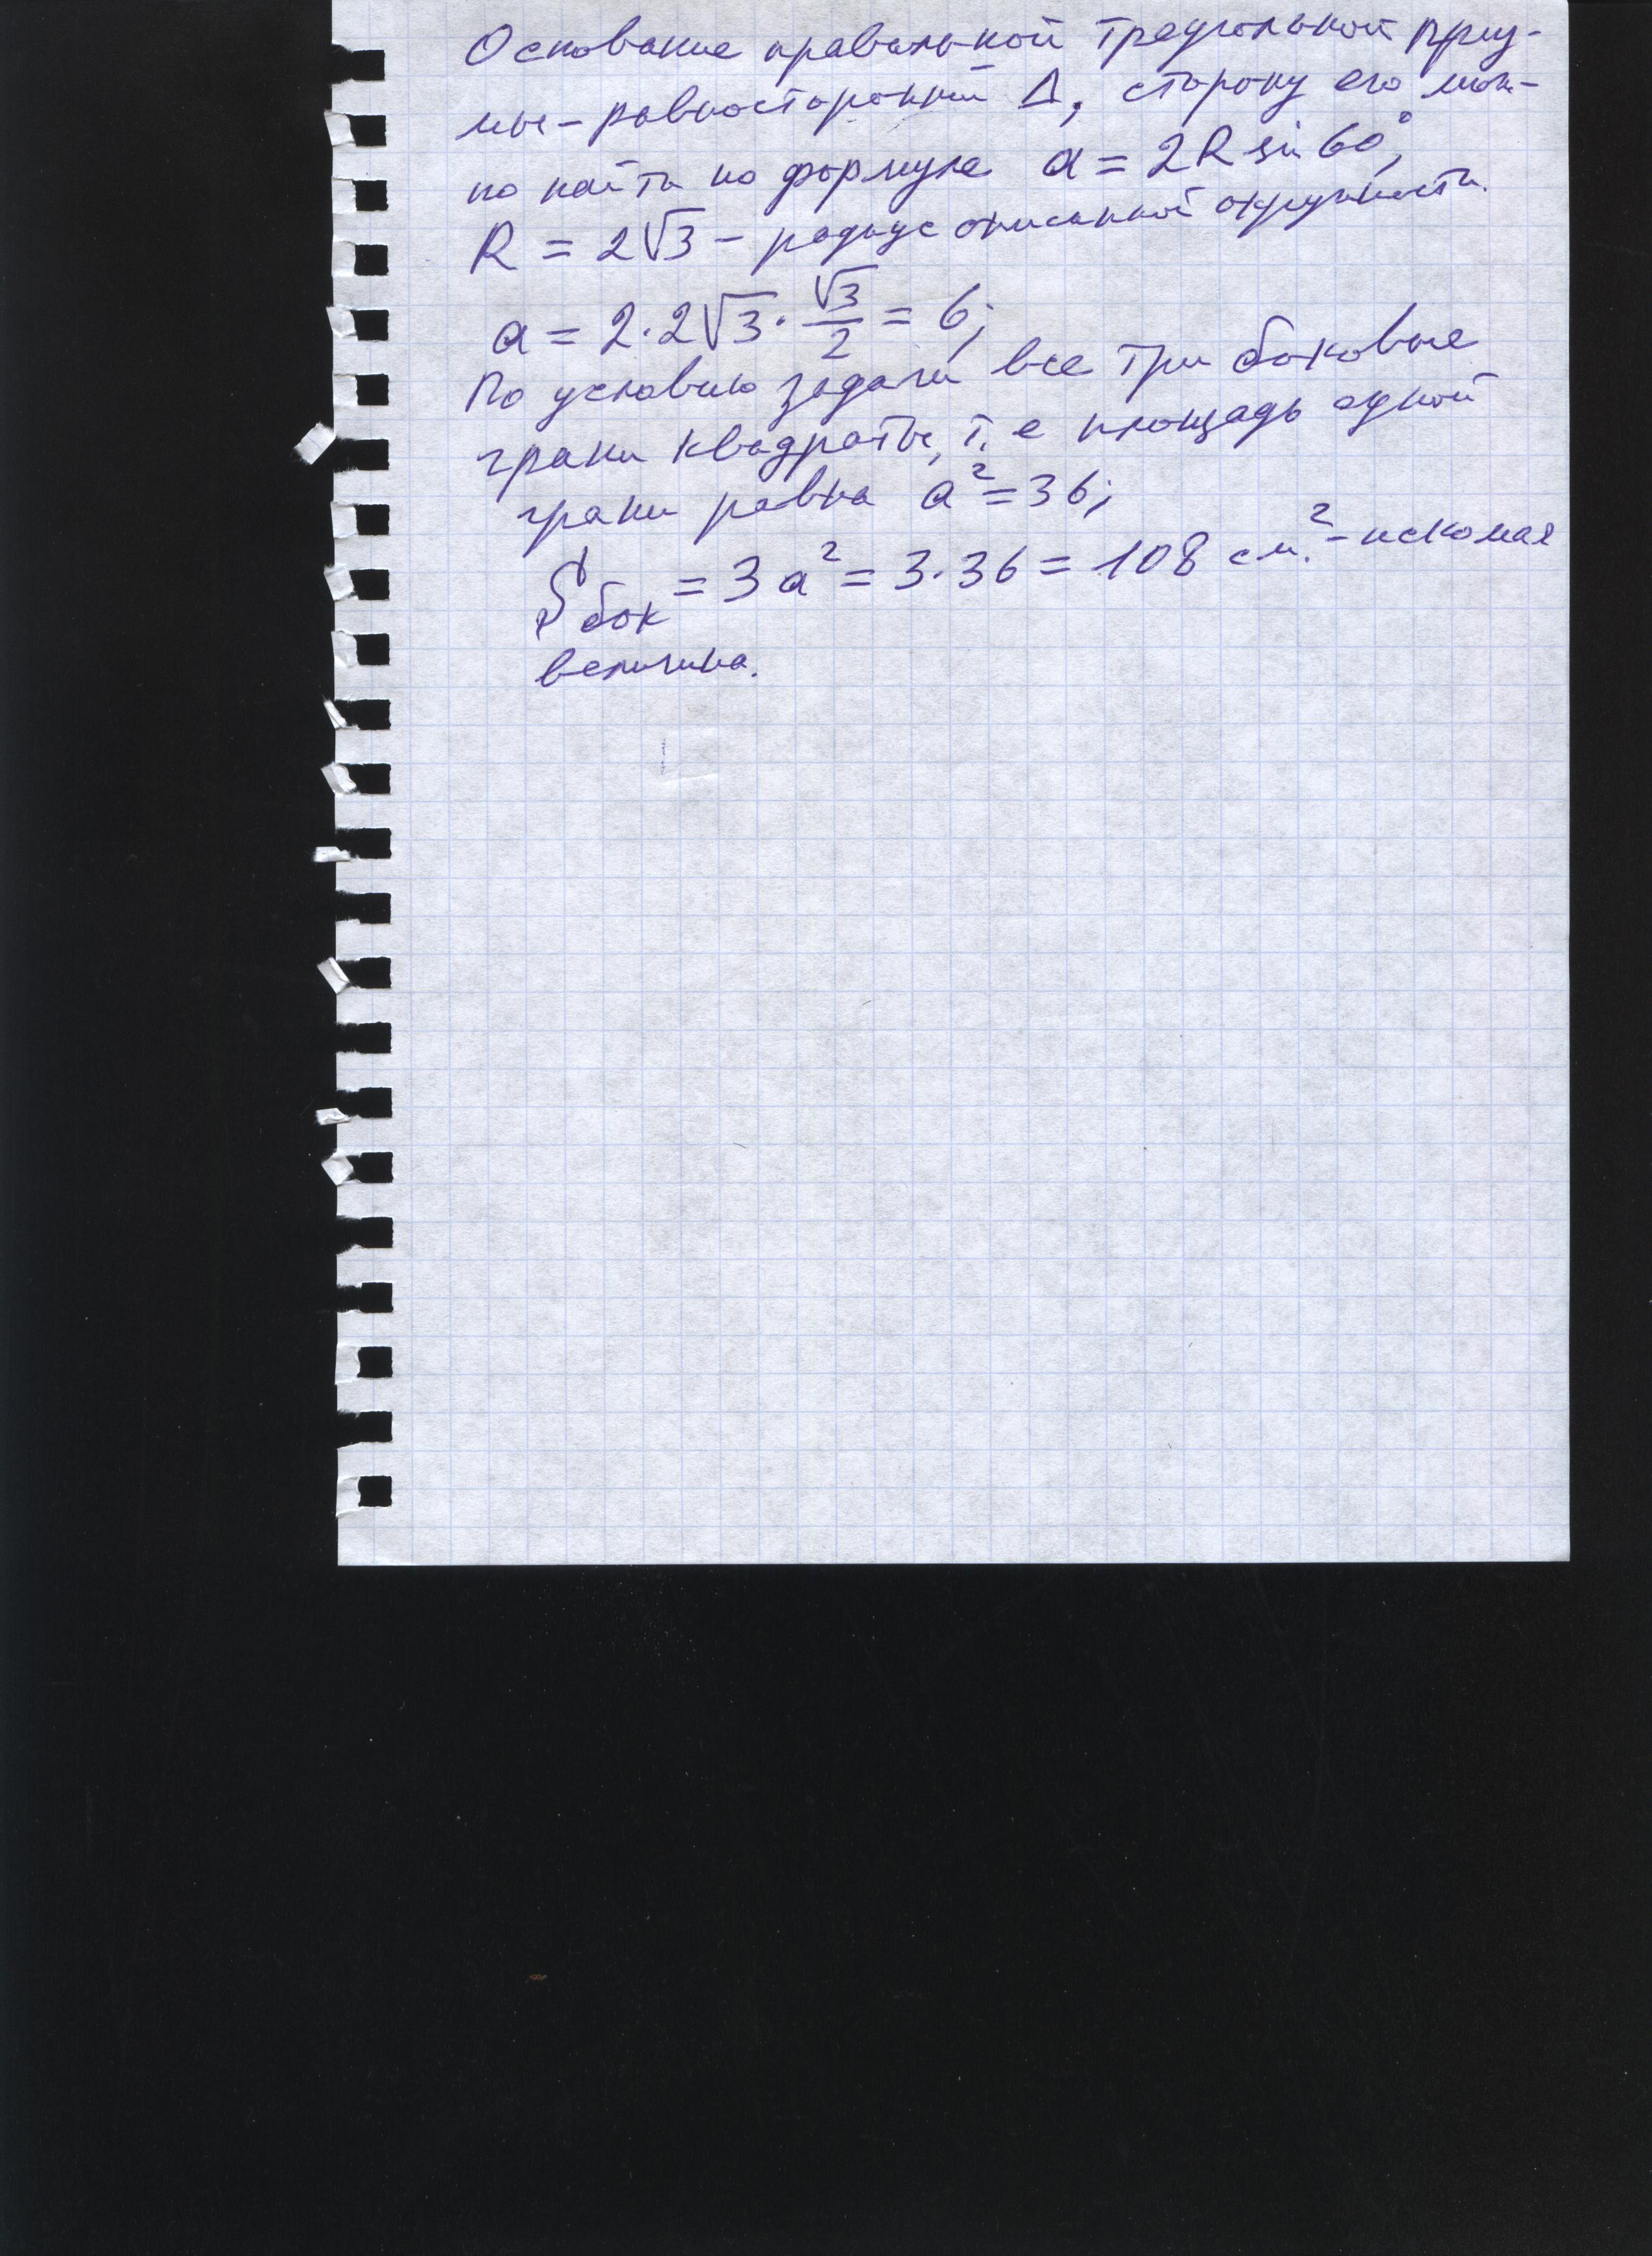 Основание правильной треугольной приз-
мы - равносторонний Δ, сторону его мож-
но найти по формуле a = 2R sin 60°,
R = 2√3 - радиус описанной окружности.
a = 2·2√3·√3/2 = 6;
По условию задачи все три боковые
грани квадраты, т.е площадь одной
грани равна a² = 36;
Sбок = 3a² = 3·36 = 108 см.² - искомая
величина.